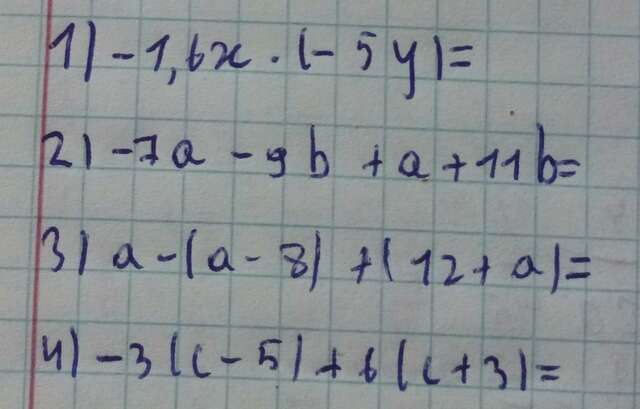 1) -1,6x · (-5y)=
2) -7a - 9b + a + 11b=
3) a - (a - 8) + (12 + a)=
4) -3(c - 5) + 6(c + 3)=